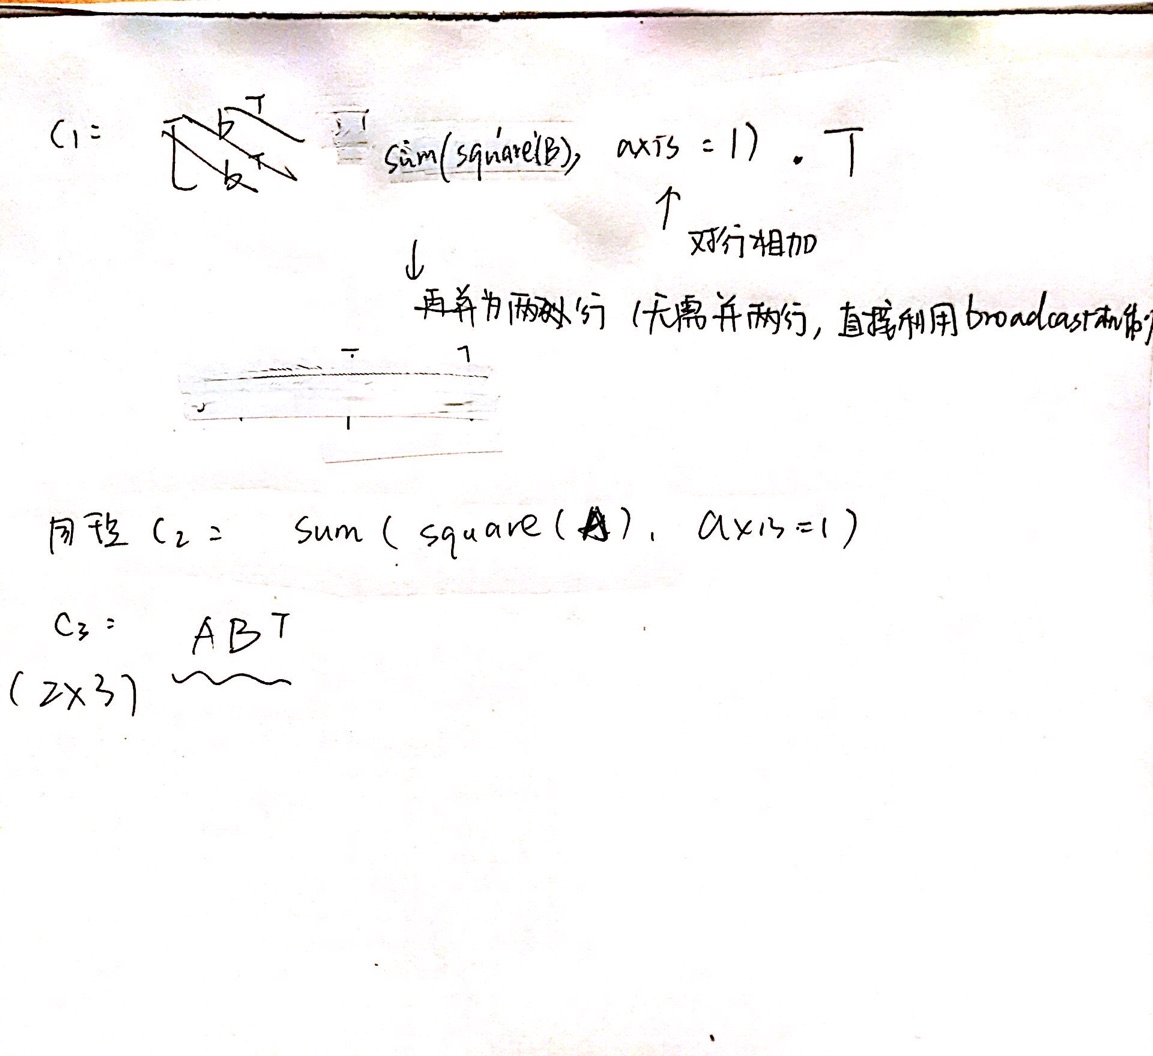 C₁ = sum(square(B), axis = 1) . T
↑
对行相加
↓
再并为两行 (无需并两行, 直接利用broadcast
同理 C₂ = sum ( square (A), axis = 1 )
C₃ = ABᵀ
(2×3)